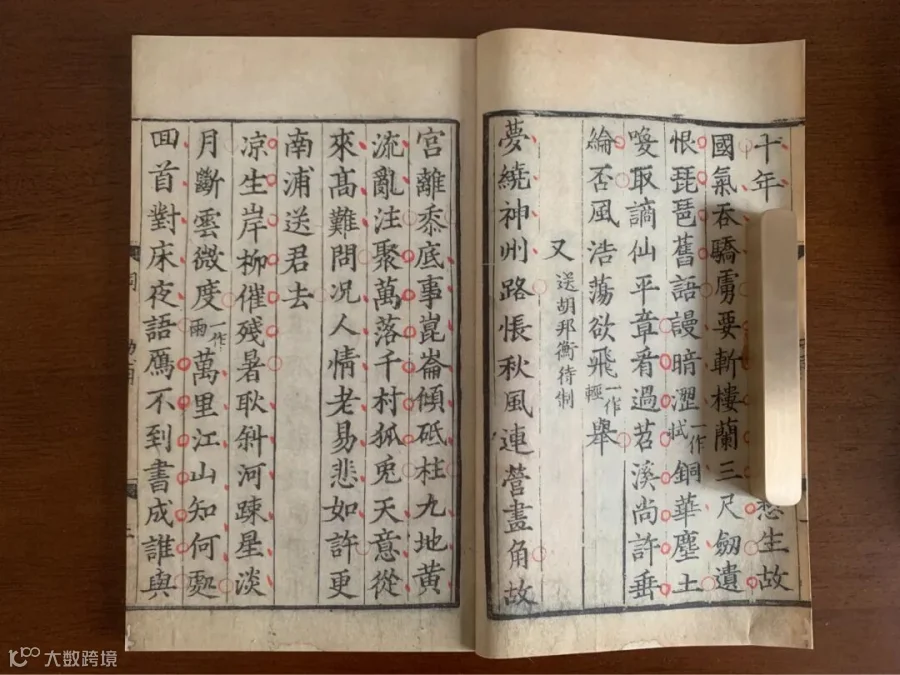 十年愁生故
國氣吞驕虜要斬樓蘭三尺劒遺
恨琵琶舊語謾暗澀一作拭銅華塵土
喚取謫仙平章看過苕溪尚許垂
綸否風浩蕩欲飛一作輕舉
又 送胡邦衡待制
夢繞神州路悵秋風連營畫角故
宮離黍底事崑崙傾砥柱九地黃
流亂注聚萬落千村狐兎天意從
來髙難問況人情老易悲如許更
南浦送君去
凉生岸柳催殘暑耿斜河踈星淡
月斷雲微度一作雨萬里江山知何處
回首對床夜語鴈不到書成誰與
大数跨境